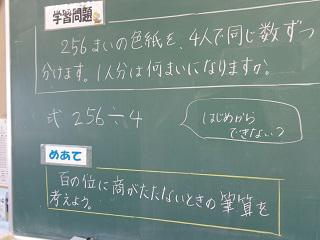 学習問題
256まいの色紙を、4人で同じ数ずつ
分けます。1人分は何まいになりますか。
式 256÷4
はじめから
できない?
めあて
百の位に商がたたないときの筆算を
考えよう。